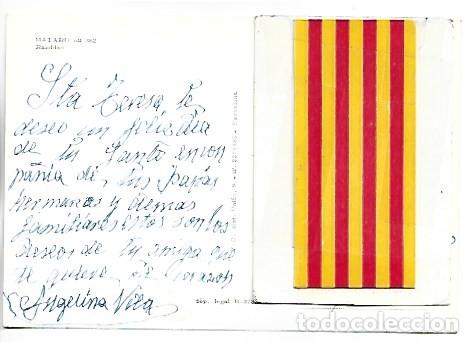 MATARÓ
Rambla
Sta Teresa, te
deseo un feliz dia
de tu Santo en com
pañia de, tus papas
hermanas y demas
familiares estos son los
deseos de tu amiga que
te quiere de corazon
Angelina Vila
Dep. legal B.
todocoleccion
todocoleccion.net